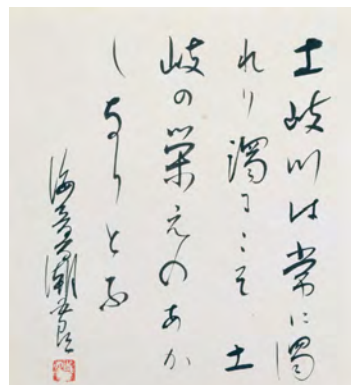 土岐川は常に濁
れり濁にこそ土
岐の栄えのあか
しなりとふ
海音寺潮五郎